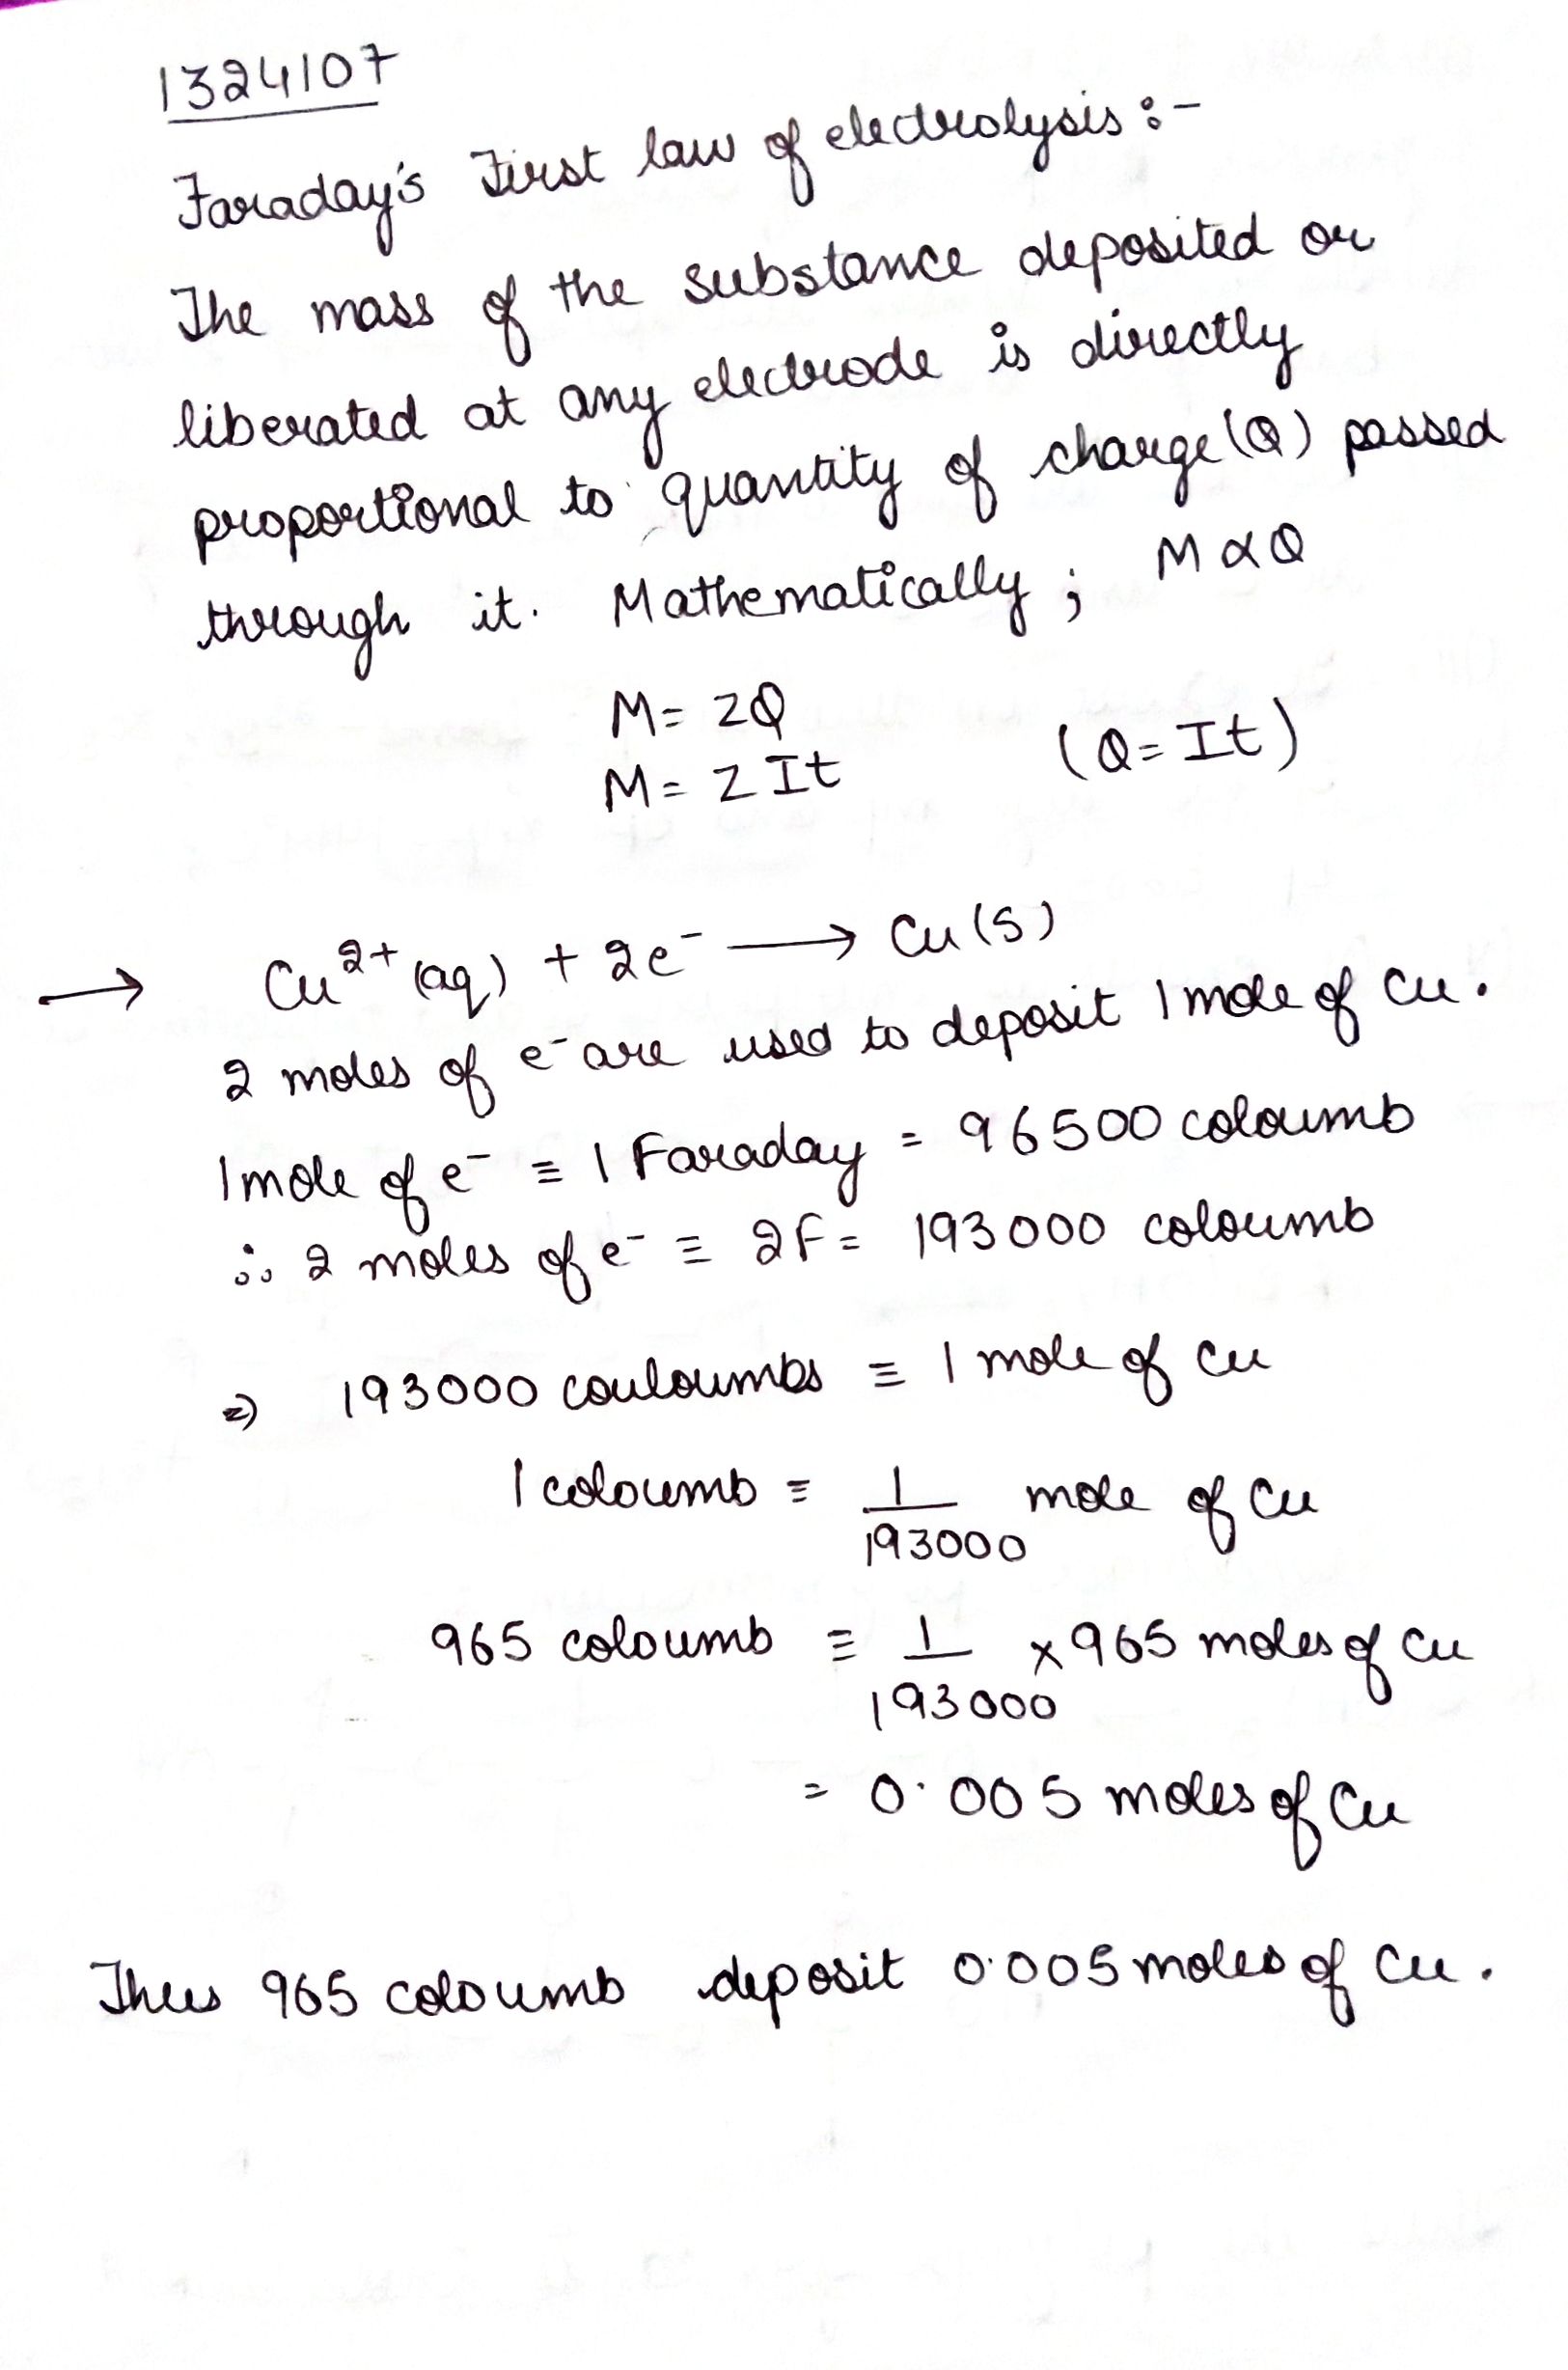 1324107
Faraday's First law of electrolysis :-
The mass of the substance deposited or
liberated at any electrode is directly
proportional to quantity of charge (Q) passed
through it. Mathematically ; M ∝ Q
M = ZQ
M = ZIt (Q = It)
→ Cu²⁺(aq) + 2e⁻ → Cu(s)
2 moles of e⁻ are used to deposit 1 mole of Cu.
1 mole of e⁻ ≡ 1 Faraday = 96500 coloumb
∴ 2 moles of e⁻ ≡ 2F = 193000 coloumb
⇒ 193000 couloumbs ≡ 1 mole of Cu
1 coloumb ≡ 1/193000 mole of Cu
965 coloumb ≡ 1/193000 × 965 moles of Cu
= 0.005 moles of Cu
Thus 965 coloumb deposit 0.005 moles of Cu.